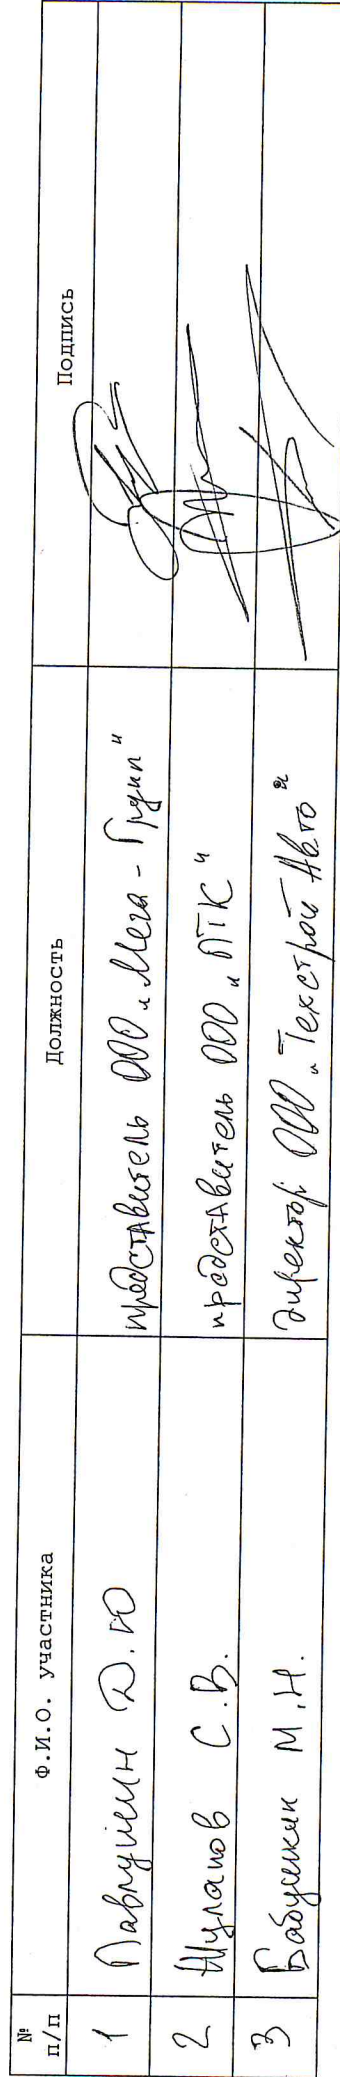 № п/п Ф.И.О. участника Должность Подпись
1 Павлушин Д.Ю представитель ООО „Мега-Групп"
2 Шулапов С.В. представитель ООО „ПТК"
3 Бабушкин М.Н. директор ООО „Техстрой Авто"